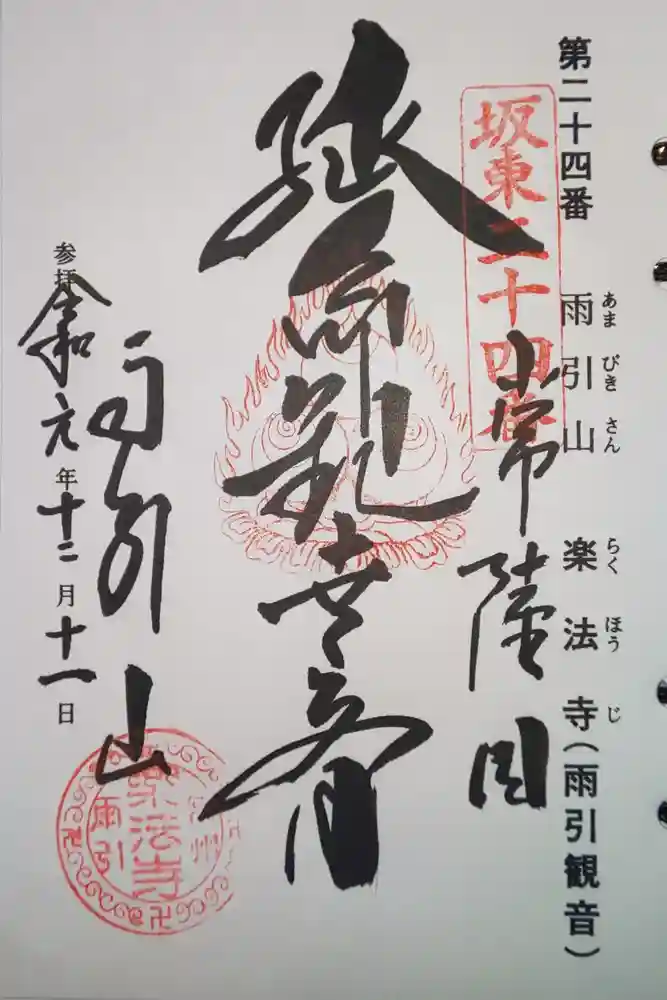 第二十四番 雨引山 楽法寺(雨引観音)
あま びき さん らく ほう じ
坂東二十四番
常陸国
延命観世音
雨引山
参拝 令和元年十二月十一日
州
樂法寺
雨引